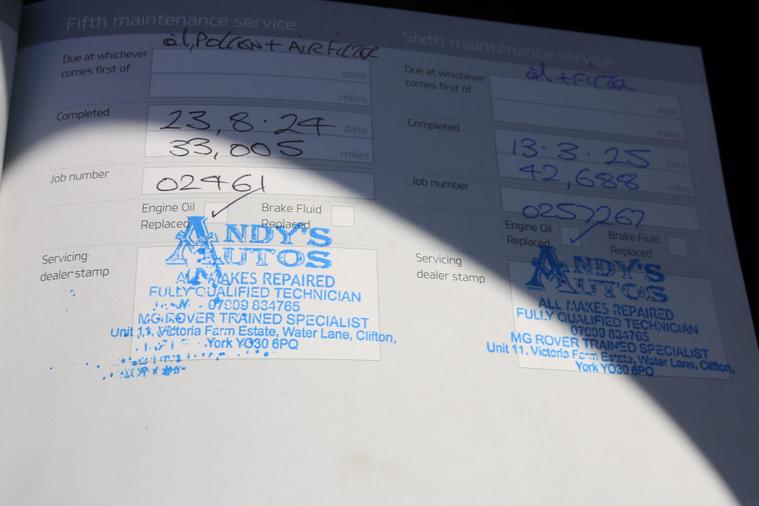 Fifth maintenance service
oil, Pollen + Air Filter
Due at whichever comes first of
date
miles
Completed
23, 8 . 24 date
33,005 miles
Job number
02461
Engine Oil Replaced
Brake Fluid Replaced
Servicing dealer stamp
ANDY'S
AUTOS
ALL MAKES REPAIRED
FULLY QUALIFIED TECHNICIAN
07909 834765
MG ROVER TRAINED SPECIALIST
Unit 11, Victoria Farm Estate, Water Lane, Clifton,
York YO30 6PQ
Sixth maintenance service
oil + Filter
Due at whichever comes first of
date
miles
Completed
13 . 3 . 25 date
42,688 miles
Job number
0257267
Engine Oil Replaced
Brake Fluid Replaced
Servicing dealer stamp
ANDY'S
AUTOS
ALL MAKES REPAIRED
FULLY QUALIFIED TECHNICIAN
07909 834765
MG ROVER TRAINED SPECIALIST
Unit 11, Victoria Farm Estate, Water Lane, Clifton,
York YO30 6PQ